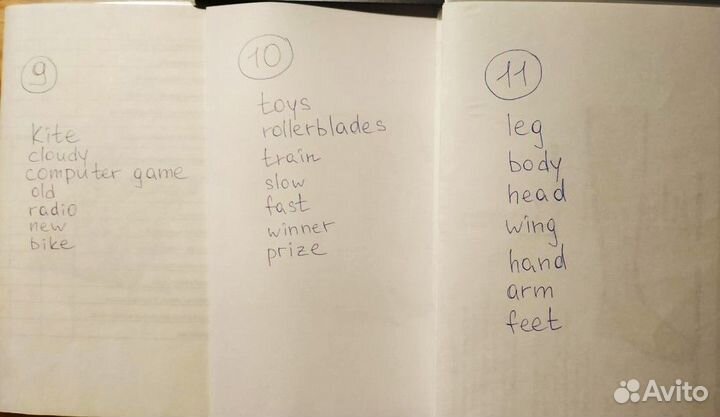 9
Kite
cloudy
computer game
old
radio
new
bike
10
toys
rollerblades
train
slow
fast
winner
prize
11
leg
body
head
wing
hand
arm
feet
Avito